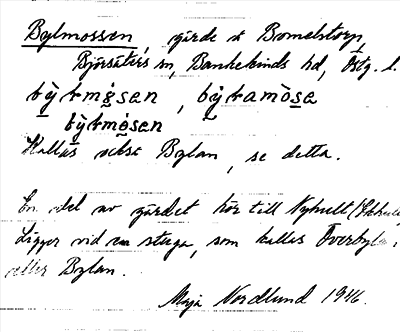 Bylmossen, gärde t Bomelstorp,
Björsäters sn, Bankekinds hd, Östg. l.
by̱ƚmo̱sen, by̱ƚamo̱sa
by̱ƚmo̱sen
Kallas också Bylan, se detta.
En del av gärdet hör till Nyhult
Ligger vid en stuga, som kallas Överbyla,
eller Bylan.
Maja Nordlund 1946.